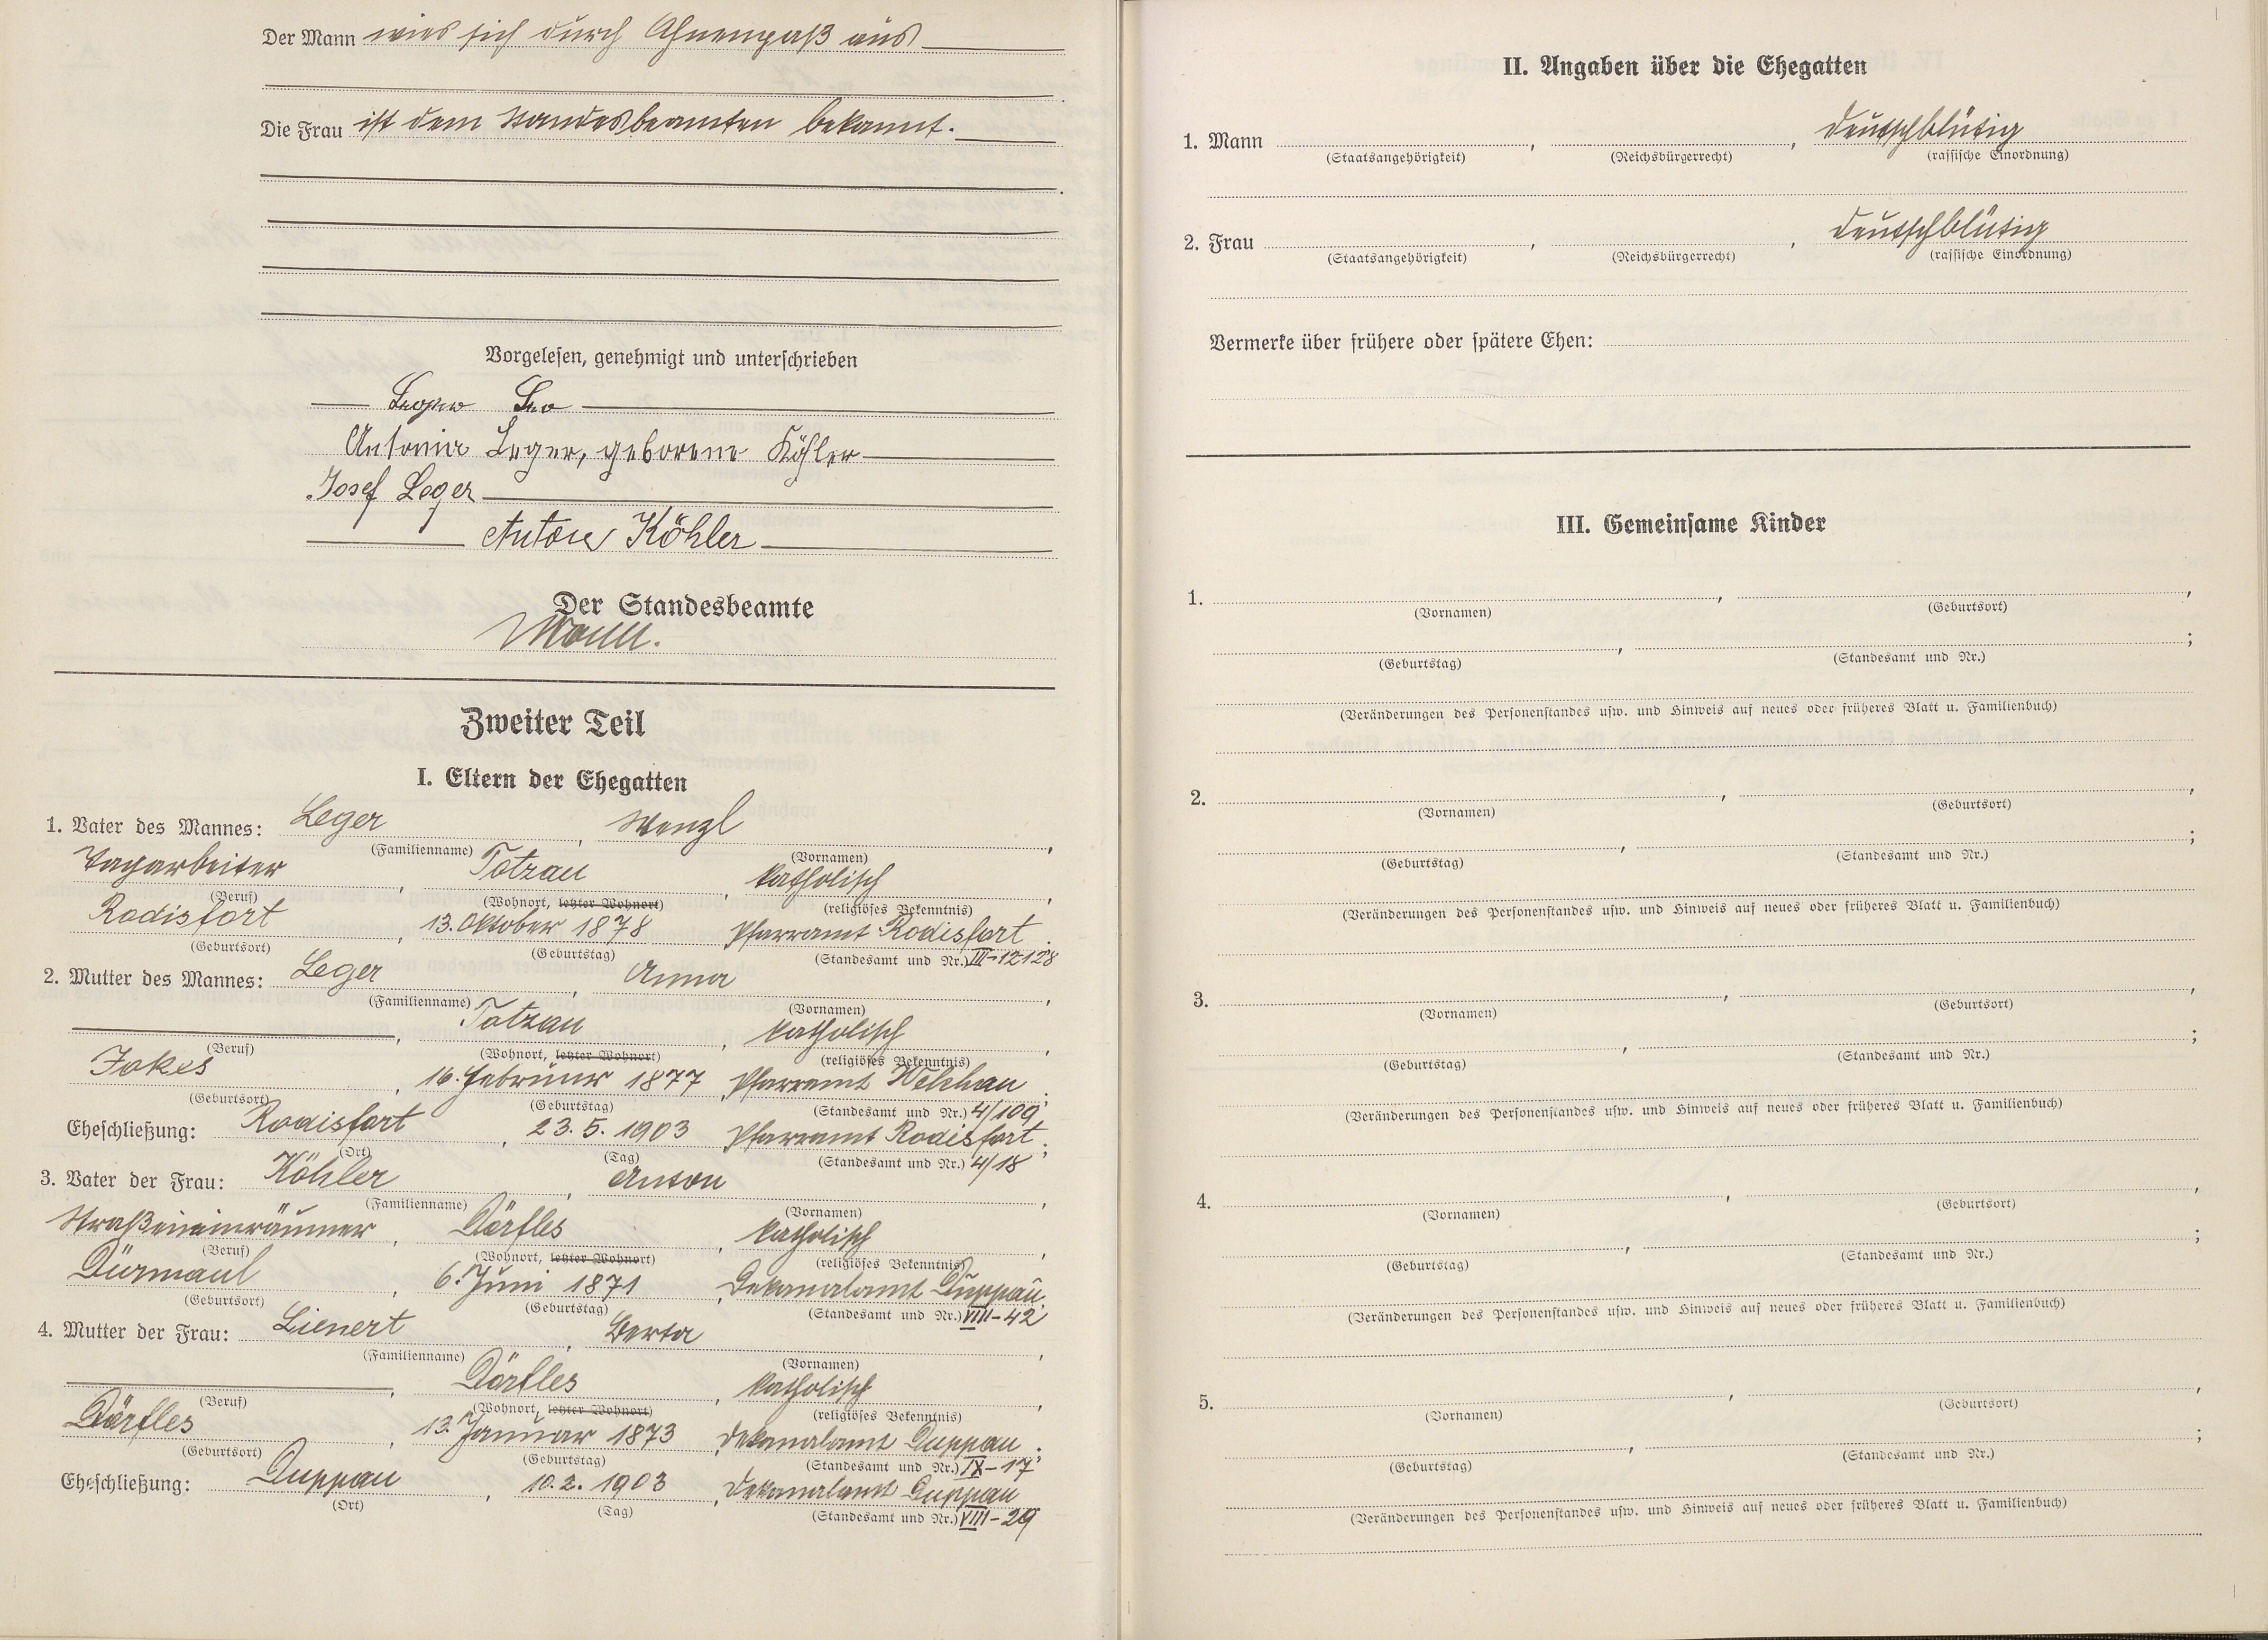 Der Mann wies sich durch Ahnenpaß aus
Die Frau ist dem Standesbeamten bekannt.
Vorgelesen, genehmigt und unterschrieben
Leger Leo
Antonia Leger, geborene Köhler
Josef Leger
Anton Köhler
Der Standesbeamte
Zweiter Teil
I. Eltern der Ehegatten
1. Vater des Mannes: Leger, Wenzl,
(Familienname) (Vornamen)
Tagarbeiter, Totzau, katholisch,
(Beruf) (Wohnort, letzter Wohnort) (religiöses Bekenntnis)
Rodisfort, 13. Oktober 1878 Pfarramt Rodisfort.
(Geburtsort) (Geburtstag) (Standesamt und Nr.) III-12128
2. Mutter des Mannes: Leger, Anna,
(Familienname) (Vornamen)
Totzau, katholisch,
(Beruf) (Wohnort, letzter Wohnort) (religiöses Bekenntnis)
Jokes, 16. Februar 1877, Pfarramt Welchau;
(Geburtsort) (Geburtstag) (Standesamt und Nr.) 4/109
Eheschließung: Rodisfort, 23.5.1903 Pfarramt Rodisfort;
(Ort) (Tag) (Standesamt und Nr.) 4/18
3. Vater der Frau: Köhler, Anton,
(Familienname) (Vornamen)
Straßeneinräumer, Dörfles, katholisch,
(Beruf) (Wohnort, letzter Wohnort) (religiöses Bekenntnis)
Dürmaul, 6. Juni 1871, Dekanalamt Duppau.
(Geburtsort) (Geburtstag) (Standesamt und Nr.) VIII-42
4. Mutter der Frau: Lienert, Berta,
(Familienname) (Vornamen)
Dörfles, katholisch,
(Beruf) (Wohnort, letzter Wohnort) (religiöses Bekenntnis)
Dörfles, 13. Januar 1873, Dekanalamt Duppau;
(Geburtsort) (Geburtstag) (Standesamt und Nr.) IX-17
Eheschließung: Duppau, 10.2.1903, Dekanalamt Duppau
(Ort) (Tag) (Standesamt und Nr.) VIII-29
II. Angaben über die Ehegatten
1. Mann , , deutschblütig
(Staatsangehörigkeit) (Reichsbürgerrecht) (rassische Einordnung)
2. Frau , , deutschblütig
(Staatsangehörigkeit) (Reichsbürgerrecht) (rassische Einordnung)
Vermerke über frühere oder spätere Ehen:
III. Gemeinsame Kinder
1. , ,
(Vornamen) (Geburtsort)
, ;
(Geburtstag) (Standesamt und Nr.)
(Veränderungen des Personenstandes usw. und Hinweis auf neues oder früheres Blatt u. Familienbuch)
2. , ,
(Vornamen) (Geburtsort)
, ;
(Geburtstag) (Standesamt und Nr.)
(Veränderungen des Personenstandes usw. und Hinweis auf neues oder früheres Blatt u. Familienbuch)
3. , ,
(Vornamen) (Geburtsort)
, ;
(Geburtstag) (Standesamt und Nr.)
(Veränderungen des Personenstandes usw. und Hinweis auf neues oder früheres Blatt u. Familienbuch)
4. , ,
(Vornamen) (Geburtsort)
, ;
(Geburtstag) (Standesamt und Nr.)
(Veränderungen des Personenstandes usw. und Hinweis auf neues oder früheres Blatt u. Familienbuch)
5. , ,
(Vornamen) (Geburtsort)
, ;
(Geburtstag) (Standesamt und Nr.)
(Veränderungen des Personenstandes usw. und Hinweis auf neues oder früheres Blatt u. Familienbuch)